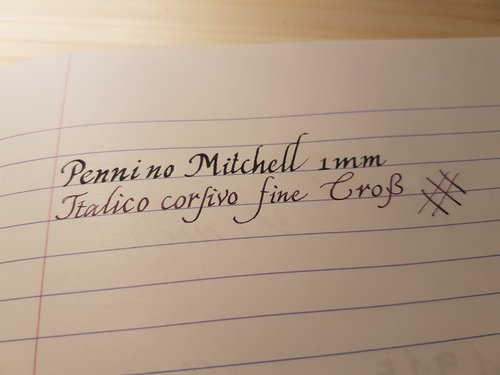 Pennino Mitchell 1mm
Italico corſivo fine Croß